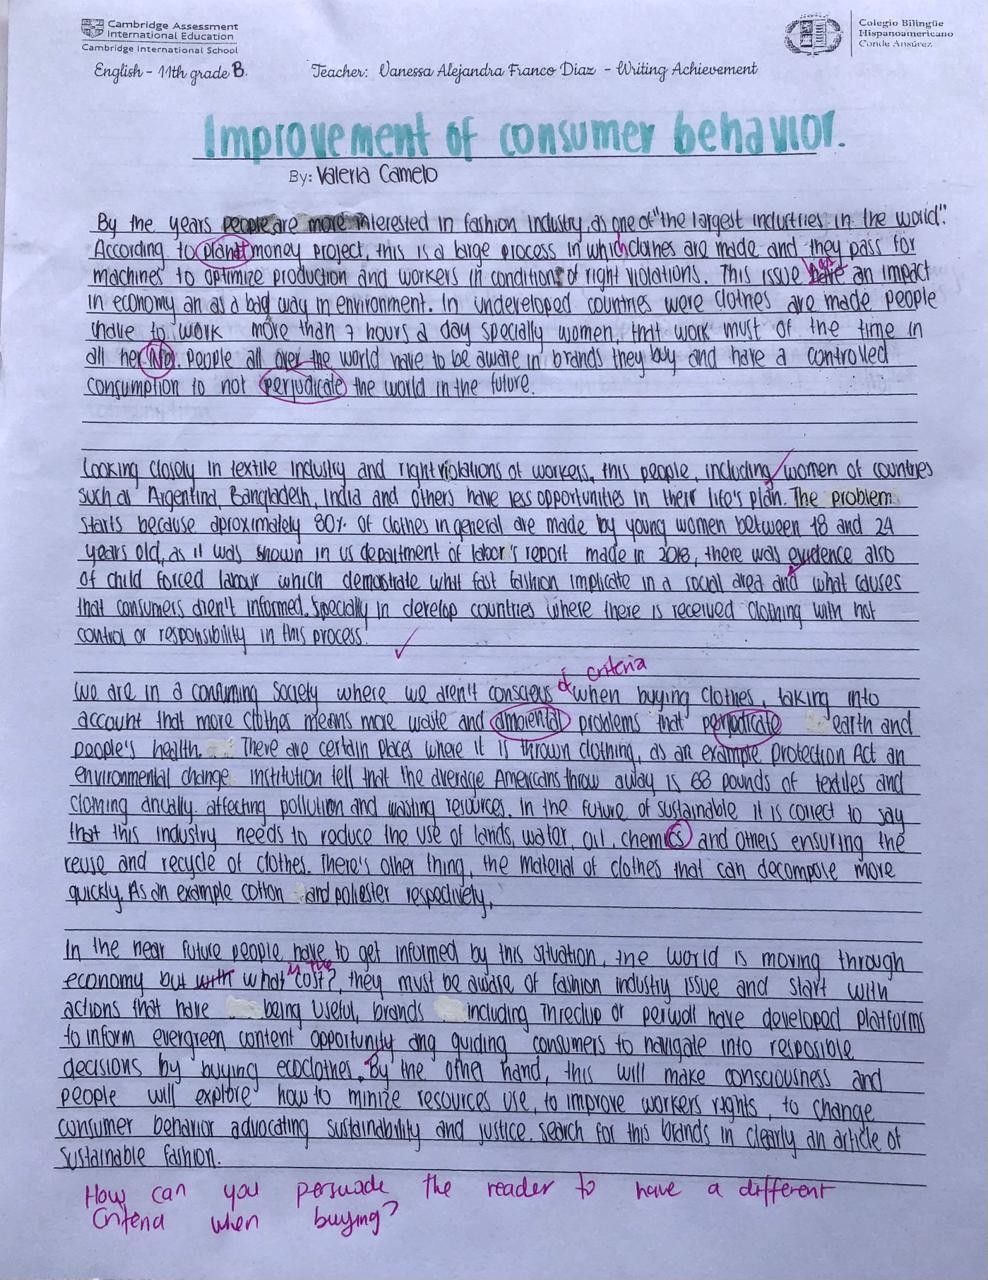 Cambridge Assessment
International Education
Cambridge International School
Colegio Bilingüe
Hispanoamericano
Conde Ansúrez
English - 11th grade B. Teacher: Vanessa Alejandra Franco Diaz - Writing Achievement
Improvement of consumer behavior.
By: Valeria Camelo
By the years people are more interested in fashion industry, as one of "the largest industries in the world".
According to planet money project, this is a large process in which clothes are made and they pass for
machines to optimize production and workers in condition of right violations. This issue has an impact
in economy an as a bad way in environment. In undeveloped countries were clothes are made people
have to work more than 7 hours a day specially women, that work must of the time in
all her No. People all over the world have to be aware in brands they buy and have a controlled
consumption to not perjudicate the world in the future.
Looking closely in textile industry and right violations of workers, this people, including women of countries
such as Argentina, Bangladesh, India and others have less opportunities in their life's plan. The problem
starts because aproximately 80% of clothes in general are made by young women between 18 and 24
years old, as it was shown in us department of labor's report made in 2018, there was evidence also
of child forced labour which demostrate what fast fashion implicate in a social area and what causes
that consumers aren't informed. Specially in develop countries where there is received clothing with not
control or responsibility in this process.
of criteria
We are in a consuming society where we aren't conscious when buying clothes, taking into
account that more clothes means more waste and ambiental problems that perjudicate earth and
people's health. There are certain places where it is thrown clothing, as an example Protection Act an
environmental change institution tell that the average Americans throw away is 68 pounds of textiles and
clothing anually, affecting pollution and wasting resources. In the future of sustainable it is corect to say
that this industry needs to reduce the use of lands, water, oil, chemics and others ensuring the
reuse and recycle of clothes. There's other thing, the material of clothes that can decompose more
quickly. As an example cotton and poliester respectively.
In the near future people have to get informed by this situation, the world is moving through
economy but with what is the cost?, they must be aware of fashion industry issue and start with
actions that have being useful, brands including Threclup or perwoll have developed platforms
to inform evergreen content opportunity ang guiding consumers to navigate into resposible
decisions by buying ecoclothes. By the other hand, this will make consciousness and
people will explore how to minize resources use, to improve workers rights, to change
consumer behavior advocating sustainability and justice. search for this brands in clearly an article of
sustainable fashion.
How can you persuade the reader to have a different
criteria when buying?